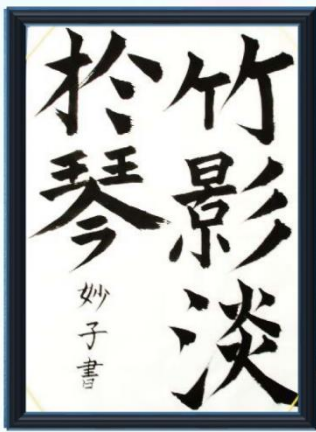 竹影淡
於琴
妙子書